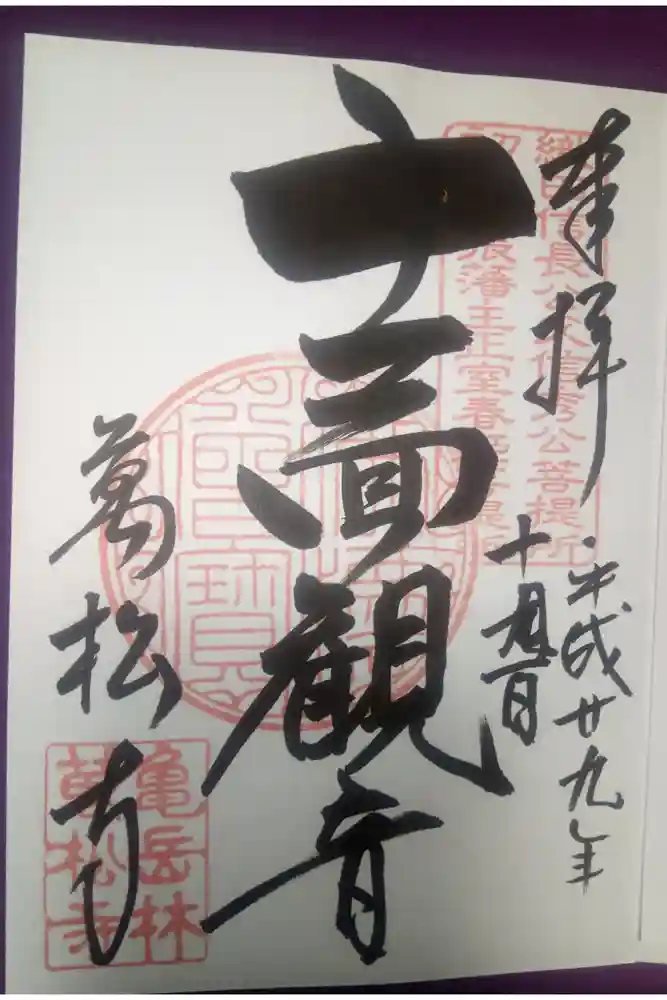 奉拝
織田信長公父信秀公菩提所
張藩主正室春
平成廿九年
十
十一面観音
萬松寺
亀岳林
萬松寺